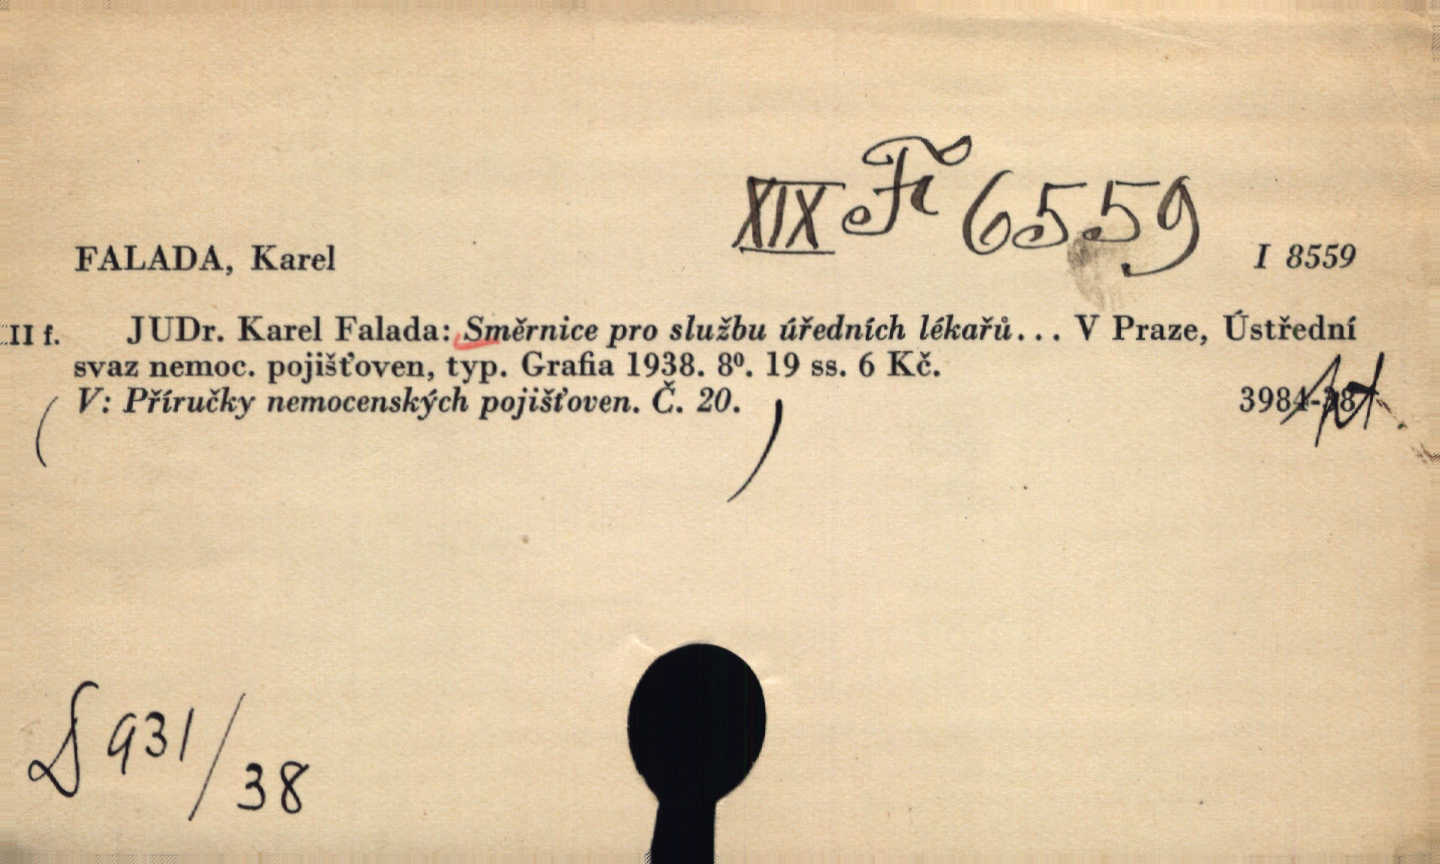 XIX Fč 6559
FALADA, Karel I 8559
II f. JUDr. Karel Falada: Směrnice pro službu úředních lékařů... V Praze, Ústřední
svaz nemoc. pojišťoven, typ. Grafia 1938. 8⁰. 19 ss. 6 Kč.
( V: Příručky nemocenských pojišťoven. Č. 20. ) 3984-38
D 931/38